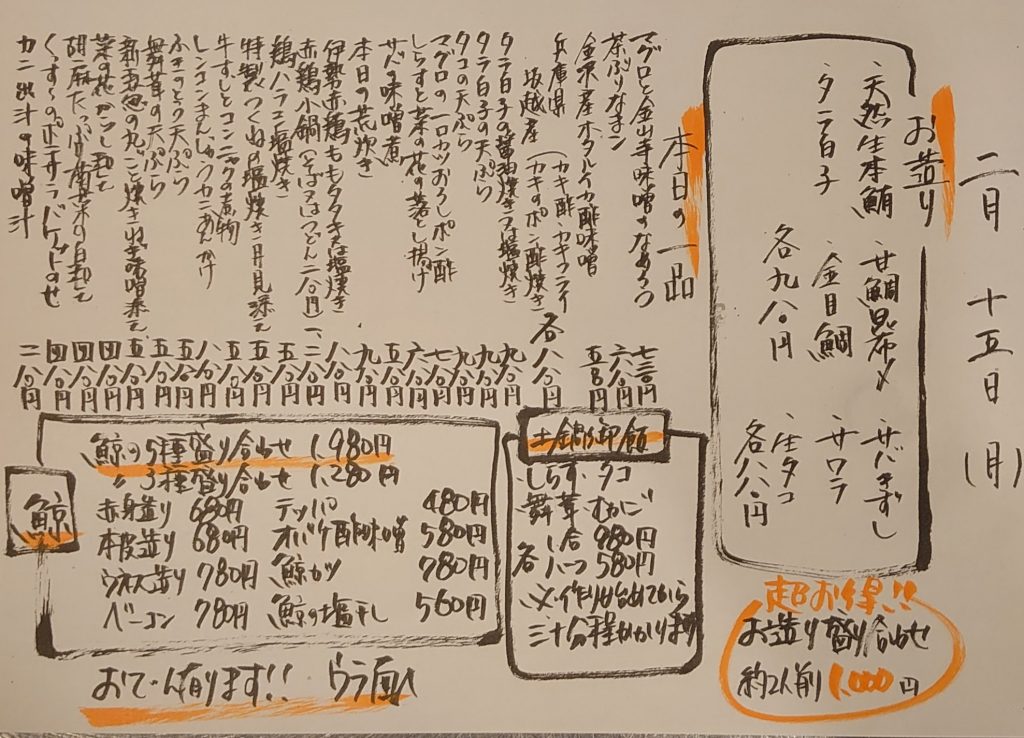 二月 十五日 (月)
お造り
天然生本鮪 甘鯛昆布〆 サバきずし
タラ白子 金目鯛 サワラ
生タコ
各九八〇円
各八八〇円
超お得!!
お造り盛り合わせ
約2人前 1,000円
本日の一品
マグロと金山寺味噌のなめろう 七三〇円
茶ぶりなまこ 六八〇円
金沢産ホタルイカ酢味噌 五八〇円
兵庫県 坂越産 (カキ酢・カキフライ カキのポン酢焼き) 各八八〇円
タラ白子の醤油焼き又は塩焼き 九八〇円
タラ白子の天ぷら 九八〇円
タコの天ぷら 九八〇円
マグロの一口カツおろしポン酢 七八〇円
しらすと菜の花の落とし揚げ 六八〇円
サバの味噌煮 五八〇円
本日の荒炊き 九八〇円
伊勢赤鶏ももタタキ又は塩焼き 八八〇円
赤鶏小鍋(そば又はうどん二八〇円) 一、二八〇円
鶏ハラミ塩焼き 五八〇円
特製つくねの塩焼き 月見添え 五八〇円
牛すじとコンニャクの煮物 五八〇円
レンコンまんじゅうカニあんかけ 八八〇円
ふきのとう天ぷら 五八〇円
舞茸の天ぷら 五八〇円
新玉葱の丸ごと焼き ねぎ味噌添え 五八〇円
菜の花からし和え 四八〇円
胡麻たっぷり 菊菜の白和え 四八〇円
くんすりのポテサラバゲットのせ 四八〇円
カニ出汁の味噌汁 二八〇円
土鍋御飯
しらす・タコ
舞茸・むかご
一合 980円
各ハーフ 580円
※作り始めてから
三十分程かかります
鯨
鯨の5種盛り合わせ 1,980円
〃 3種盛り合わせ 1,280円
赤身造り 680円 テッパ 480円
本皮造り 680円 オバケ酢味噌 580円
ウネス造り 780円 鯨カツ 780円
ベーコン 780円 鯨の塩干し 560円
おでん有ります!! ウラ面へ